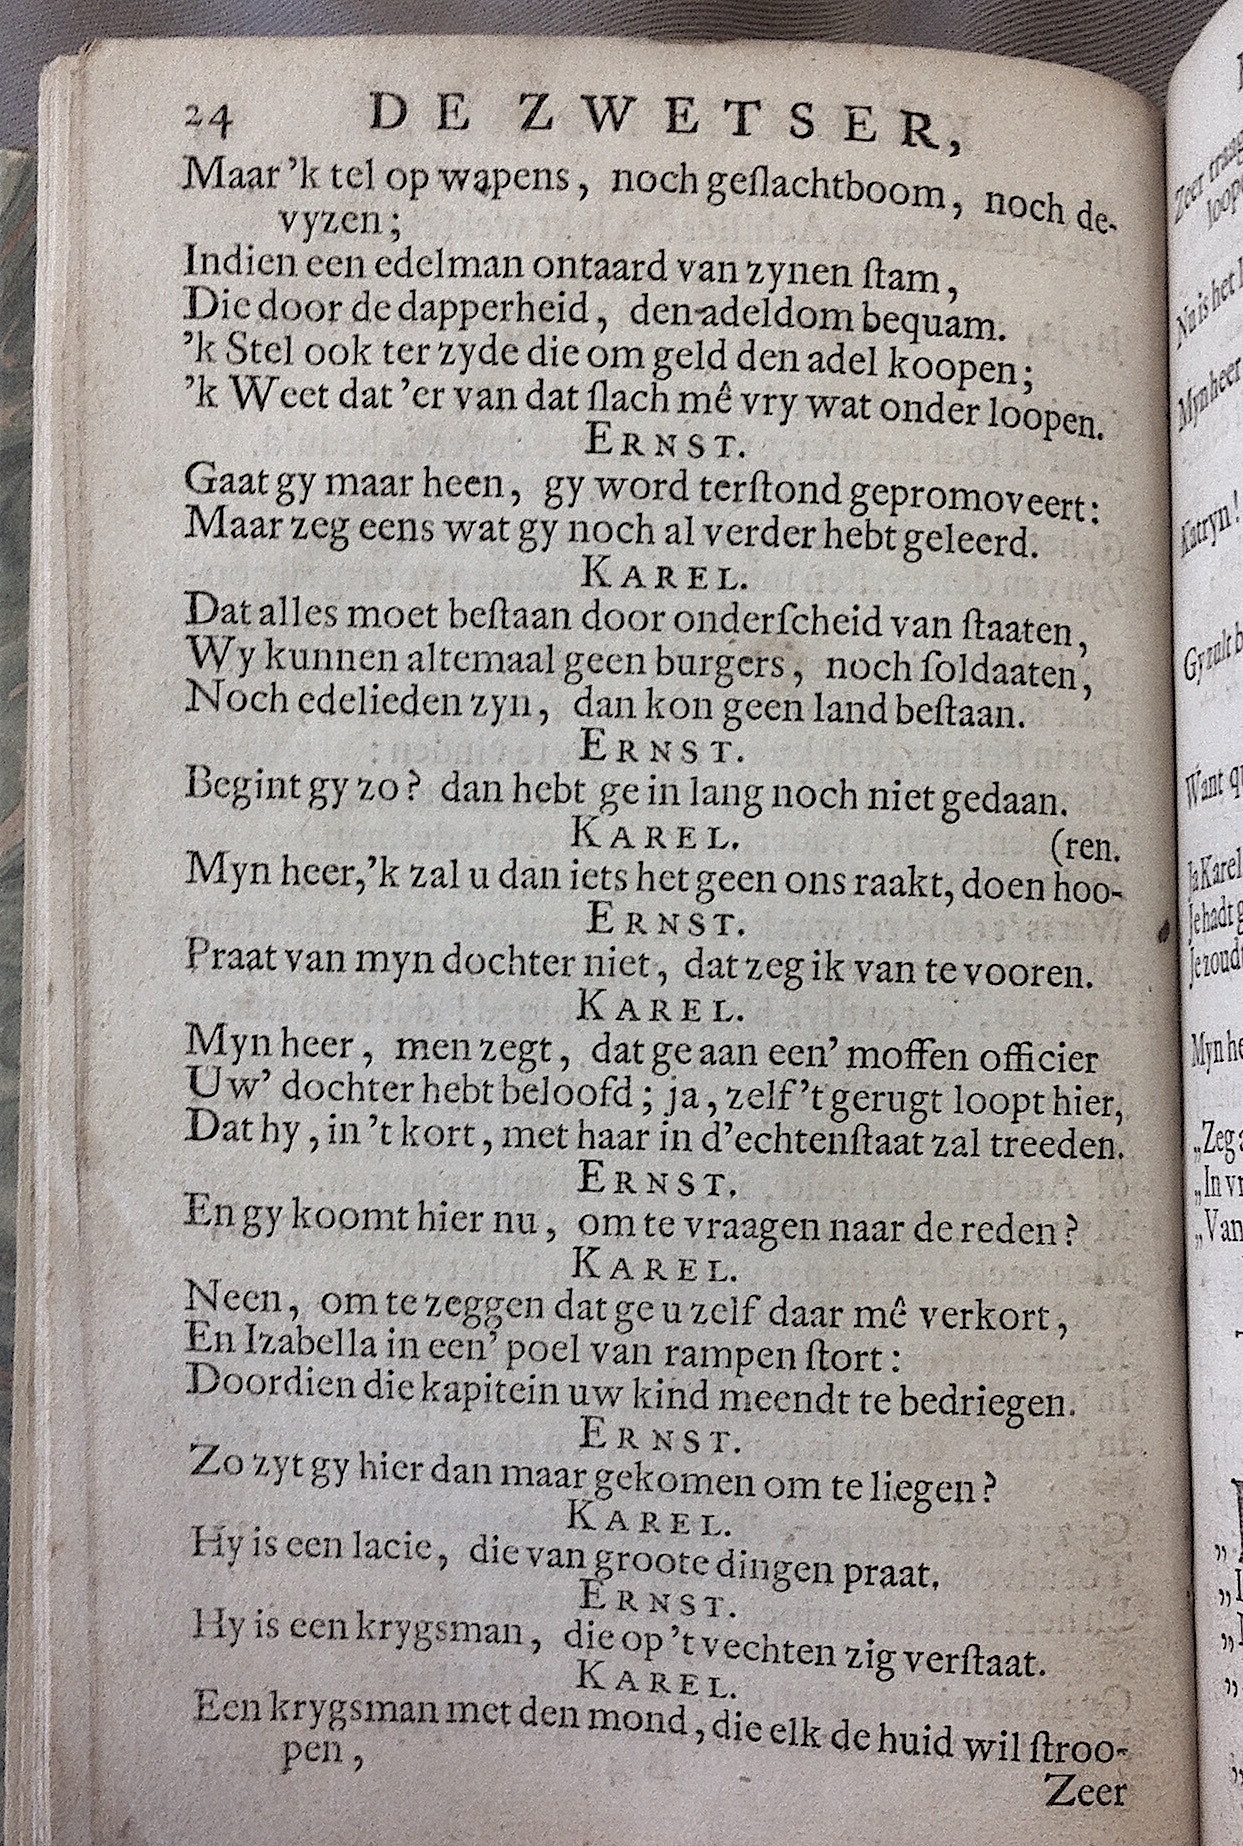 24 DE ZWETSER,
Maar 'k tel op wapens, noch geſlachtboom, noch de-
vyzen;
Indien een edelman ontaard van zynen ſtam,
Die door de dapperheid, den adeldom bequam.
'k Stel ook ter zyde die om geld den adel koopen;
'k Weet dat 'er van dat ſlach mê vry wat onder loopen.
ERNST.
Gaat gy maar heen, gy word terſtond gepromoveert:
Maar zeg eens wat gy noch al verder hebt geleerd.
KAREL.
Dat alles moet beſtaan door onderſcheid van ſtaaten,
Wy kunnen altemaal geen burgers, noch ſoldaaten,
Noch edelieden zyn, dan kon geen land beſtaan.
ERNST.
Begint gy zo? dan hebt ge in lang noch niet gedaan.
KAREL. (ren.
Myn heer, 'k zal u dan iets het geen ons raakt, doen hoo-
ERNST.
Praat van myn dochter niet, dat zeg ik van te vooren.
KAREL.
Myn heer, men zegt, dat ge aan een' moffen officier
Uw' dochter hebt beloofd; ja, zelf 't gerugt loopt hier,
Dat hy, in 't kort, met haar in d'echtenſtaat zal treeden.
ERNST.
En gy koomt hier nu, om te vraagen naar de reden?
KAREL.
Neen, om te zeggen dat ge u zelf daar mê verkort,
En Izabella in een' poel van rampen ſtort:
Doordien die kapitein uw kind meendt te bedriegen.
ERNST.
Zo zyt gy hier dan maar gekomen om te liegen?
KAREL.
Hy is een lacie, die van groote dingen praat.
ERNST.
Hy is een krygsman, die op 't vechten zig verſtaat.
KAREL.
Een krygsman met den mond, die elk de huid wil ſtroo-
pen,
Zeer
Zeer
loop
Nu is het
Mynheer
Katryn!
Gy zult
Want
Ja Karel
Je hadt
Je zoudt
„Zeg
„In
„Van